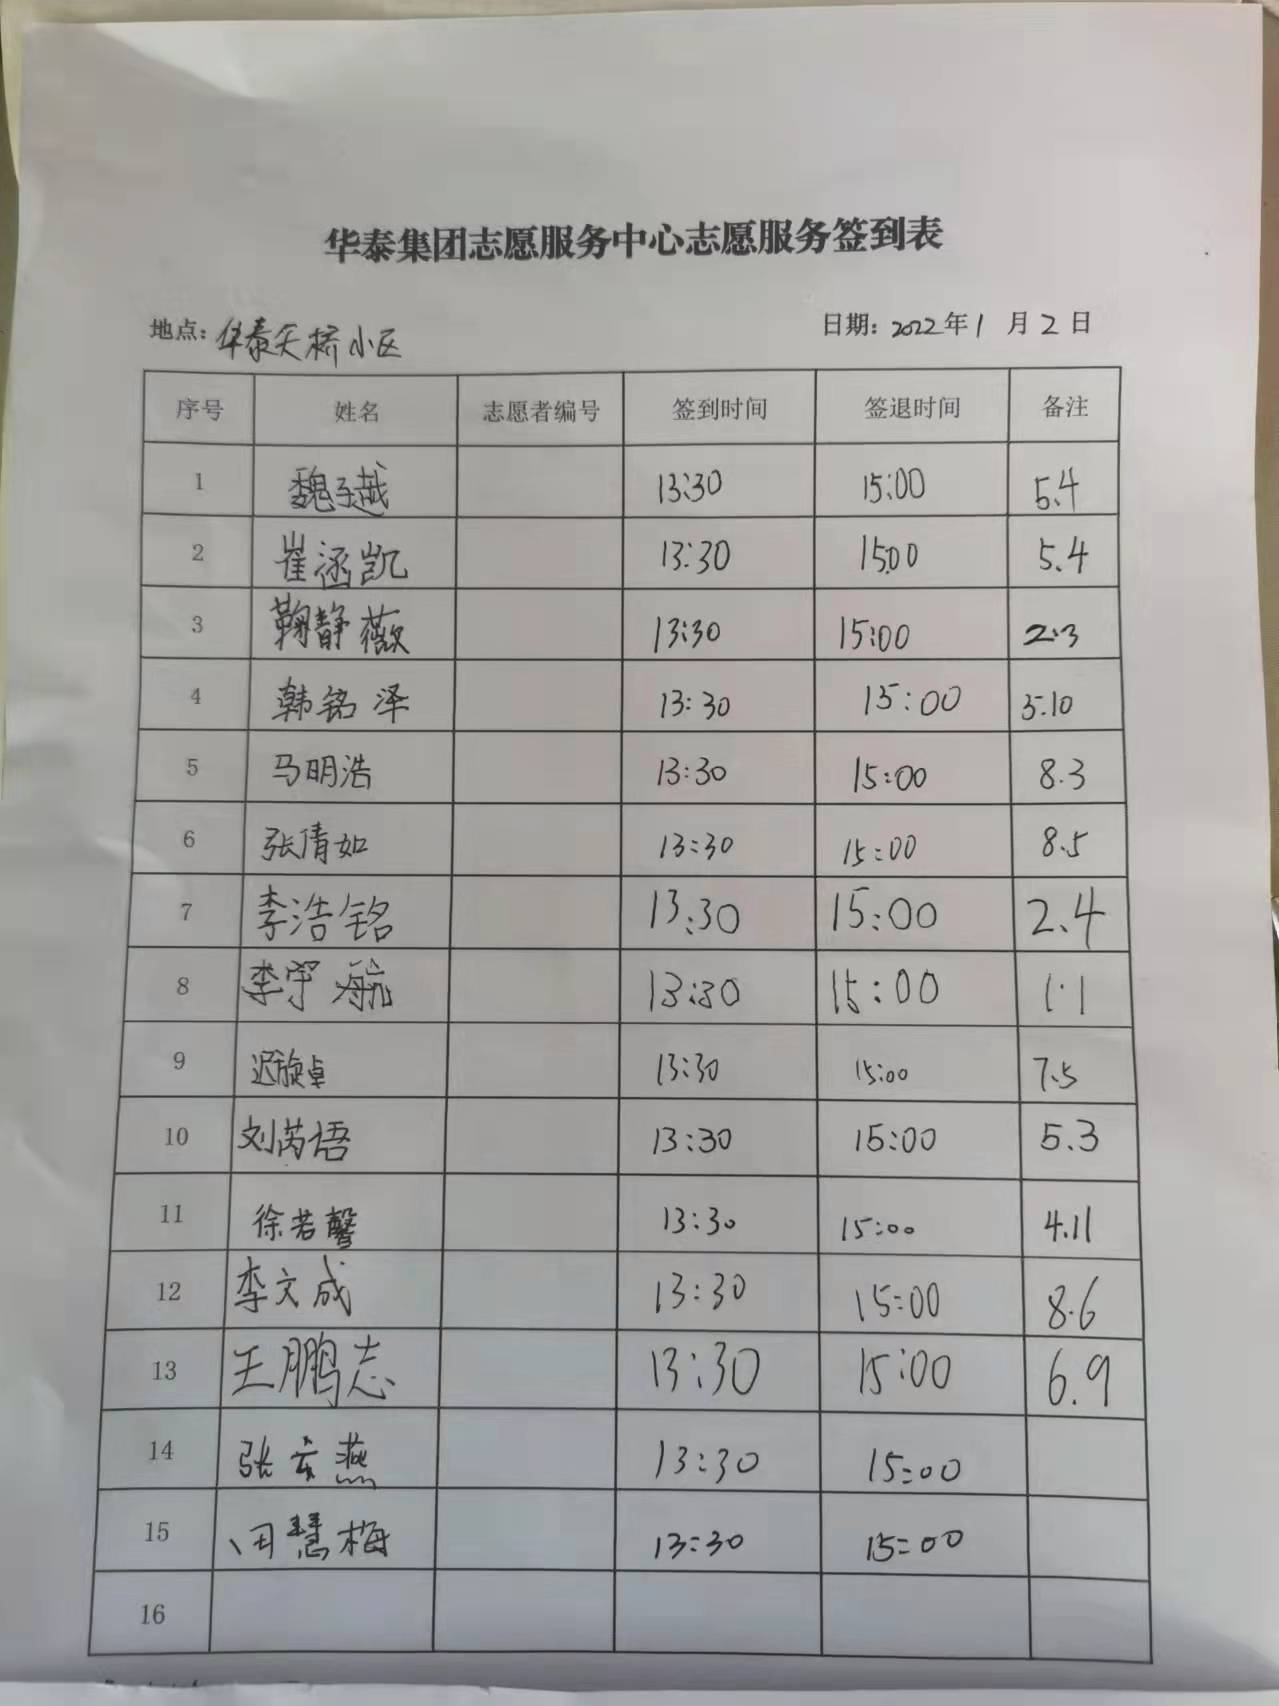 华泰集团志愿服务中心志愿服务签到表
地点：华泰天桥小区 日期：2022年1月2日
序号 姓名 志愿者编号 签到时间 签退时间 备注
1 魏子越 13:30 15:00 5.4
2 崔涵凯 13:30 15:00 5.4
3 鞠静薇 13:30 15:00 2.3
4 韩铭泽 13:30 15:00 5.10
5 马明浩 13:30 15:00 8.3
6 张倩如 13:30 15:00 8.5
7 李浩铭 13:30 15:00 2.4
8 李宇航 13:30 15:00 1.1
9 迟旋卓 13:30 15:00 7.5
10 刘芮语 13:30 15:00 5.3
11 徐若馨 13:30 15:00 4.11
12 李文成 13:30 15:00 8.6
13 王鹏志 13:30 15:00 6.9
14 张云燕 13:30 15:00
15 田慧梅 13:30 15:00
16